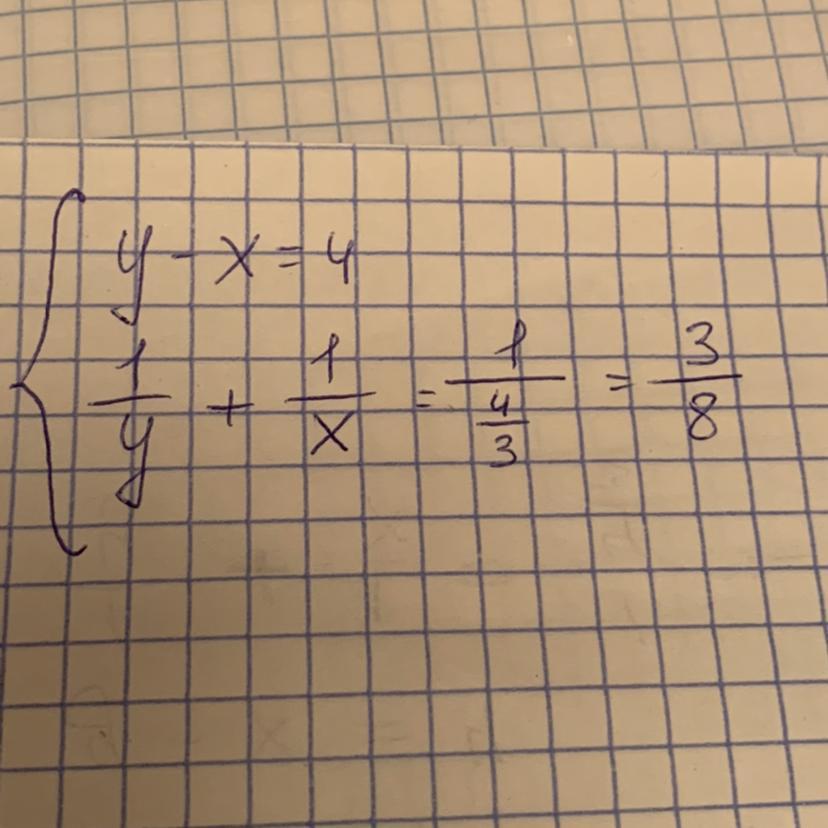 y - x = 4
1/y + 1/x = 1/(4/3) = 3/8